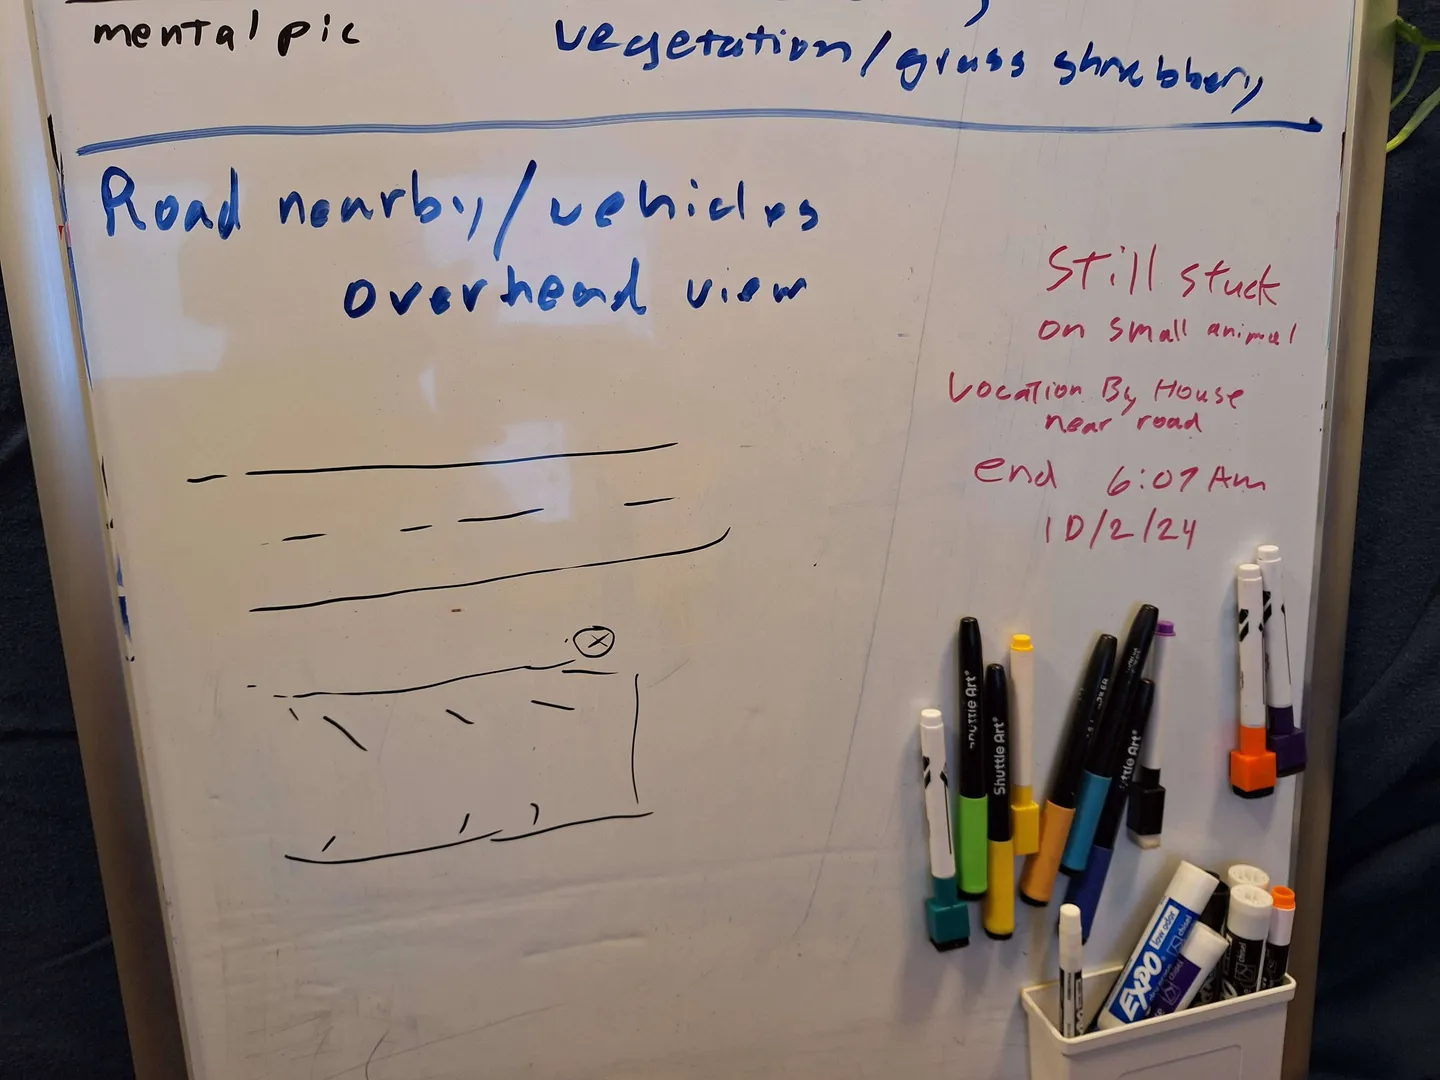 mental pic
vegetation/grass shrubbery
Road nearby/vehicles
overhead view
Still stuck
on small animal
Location By House
near road
end 6:07 Am
10/2/24
Shuttle Art
Shuttle Art
EXPO
low odor